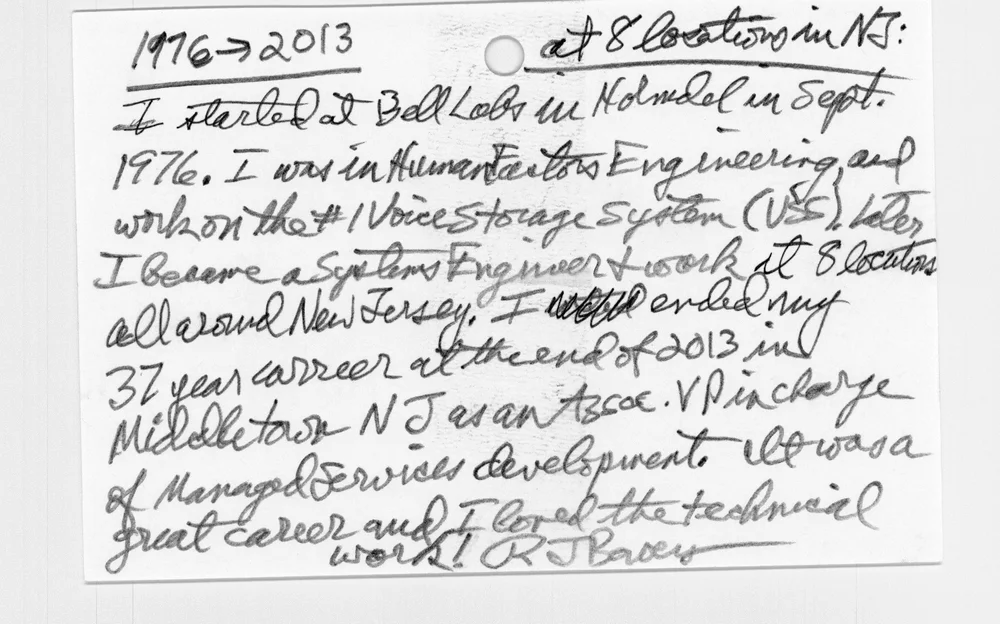 1976→2013 at 8 locations in NJ:
I started at Bell Labs in Holmdel in Sept.
1976. I was in Human Factors Engineering, and
work on the #1 Voice Storage System (VSS). Later
I became a Systems Engineer & work at 8 locations
all around New Jersey. I ended my
37 year carreer at the end of 2013 in
Middletown NJ as an Assoc. VP in charge
of Managed Services development. It was a
great career and I loved the technical
work! R J